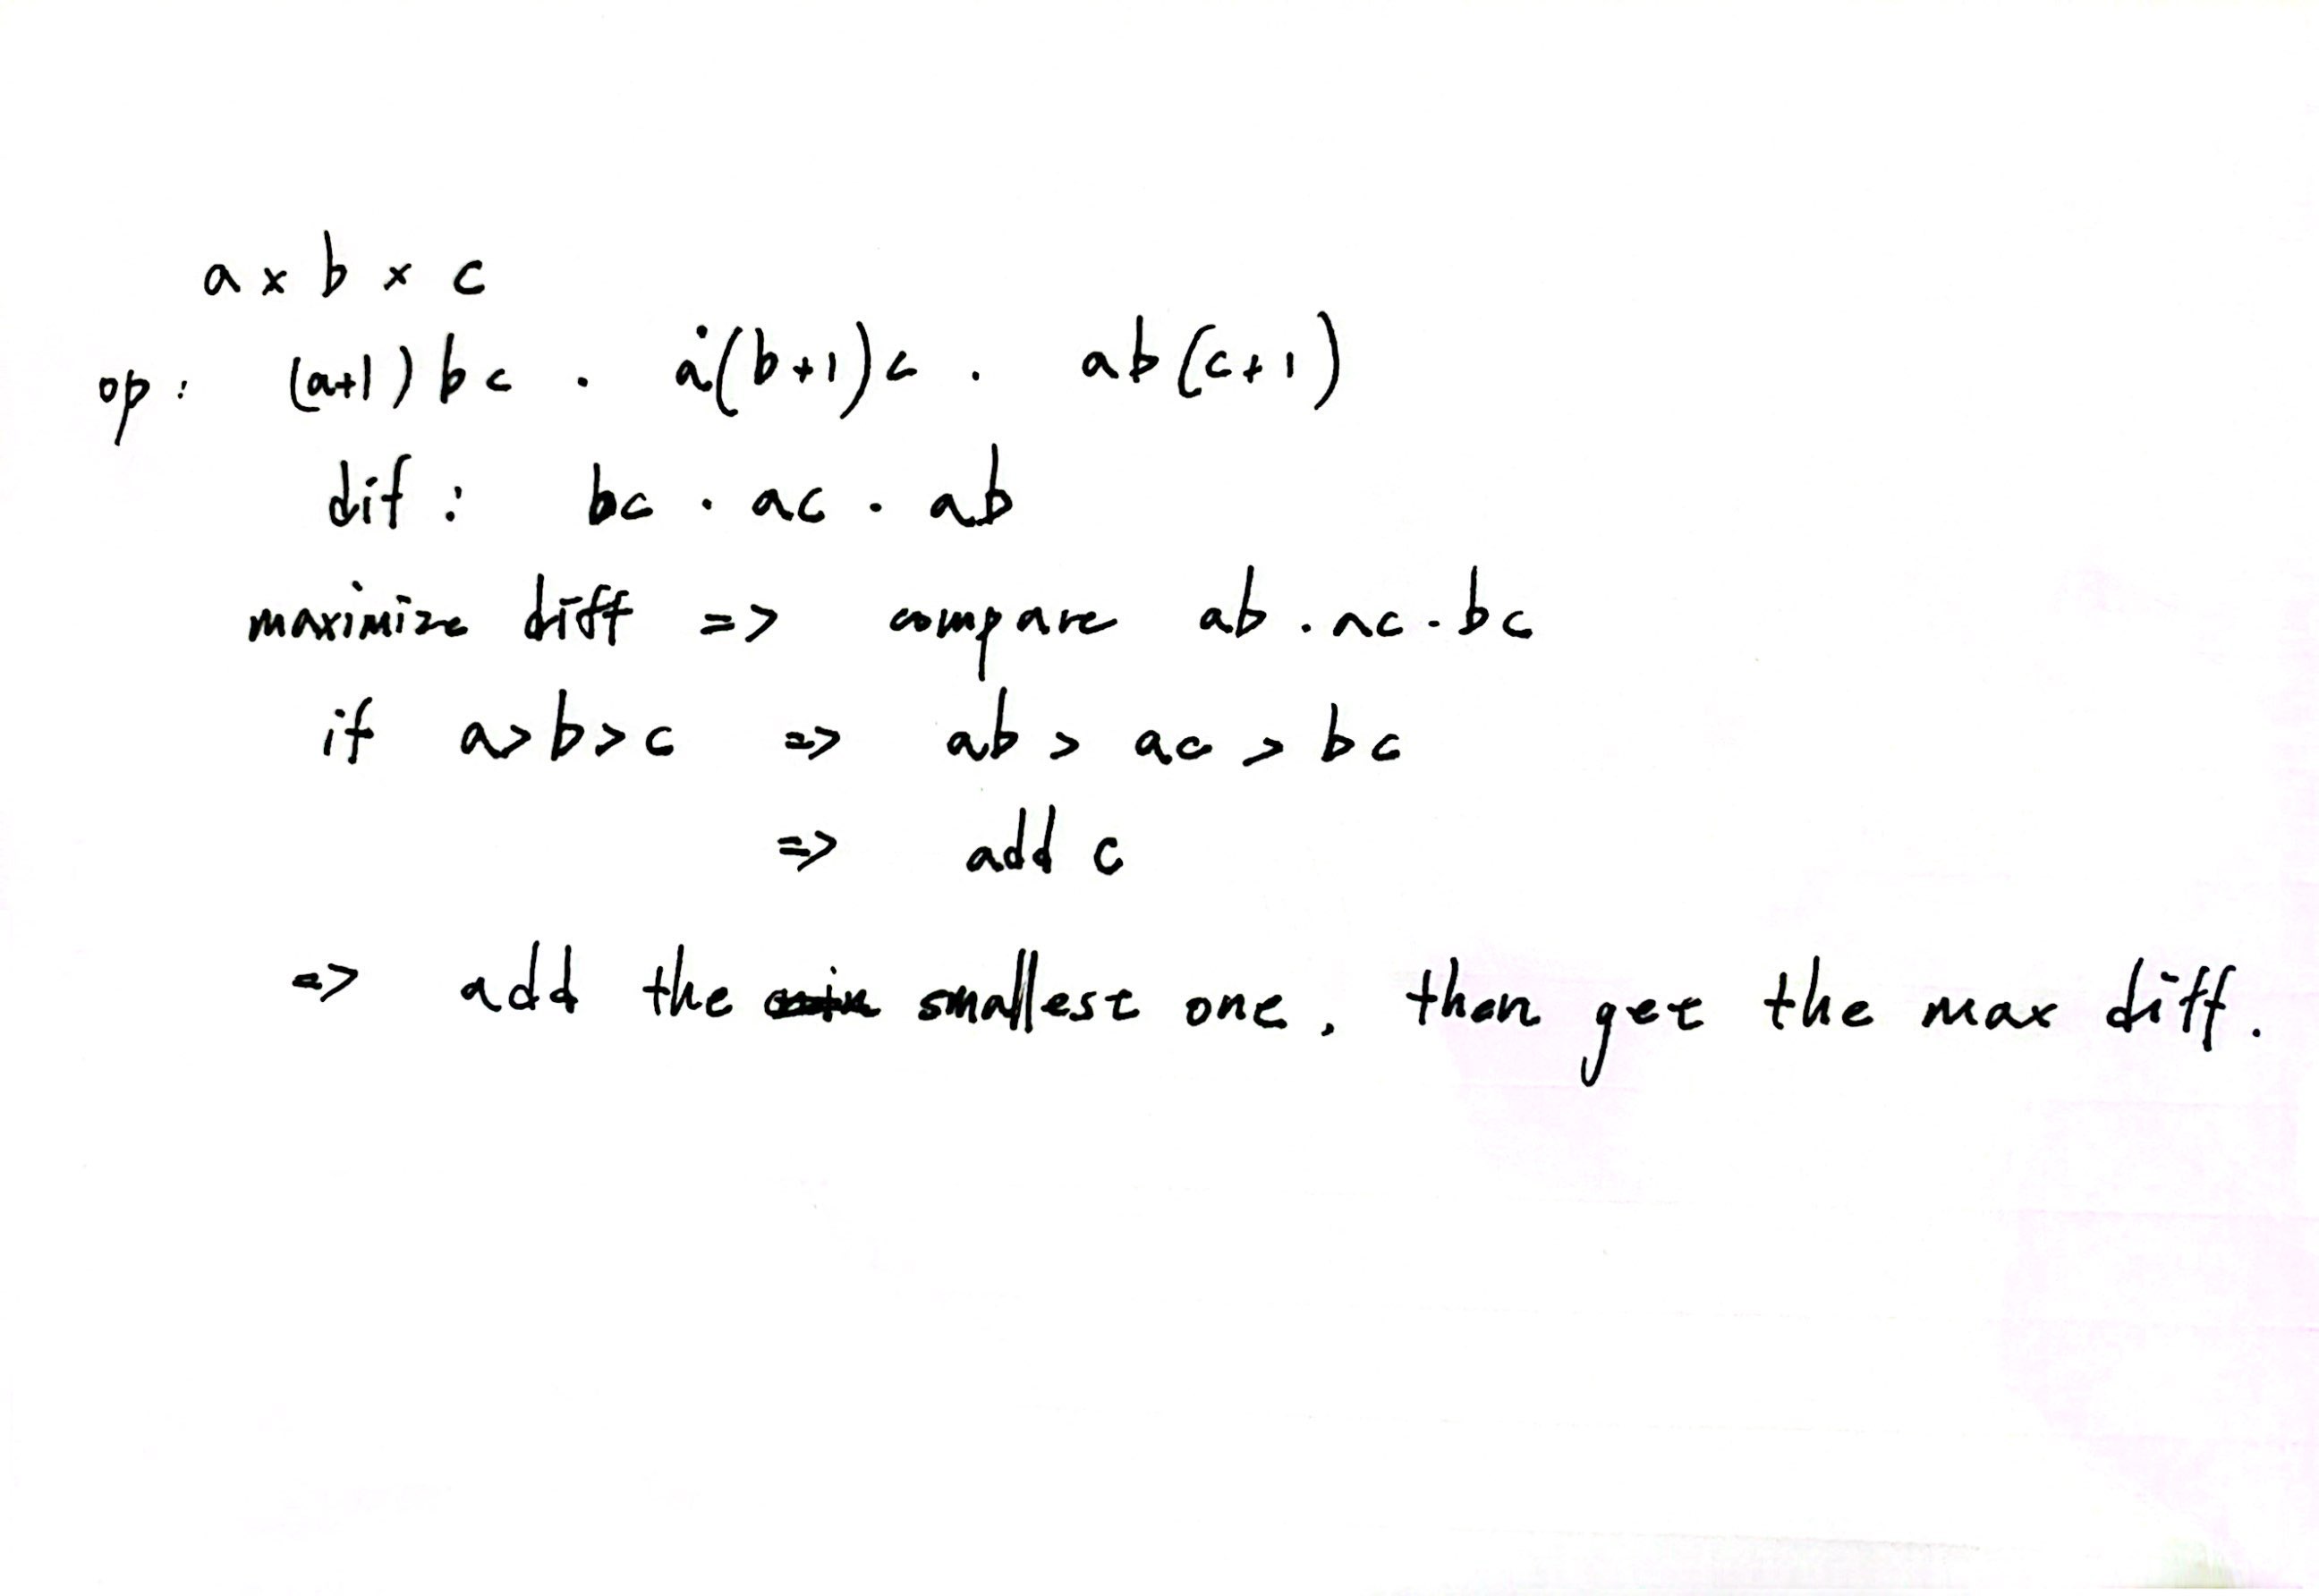 a x b x c
op : (a+1) b c . a(b+1)c . ab(c+1)
dif : bc . ac . ab
maximize diff => compare ab . ac . bc
if a>b>c => ab > ac > bc
=> add c
=> add the smallest one, then get the max diff.